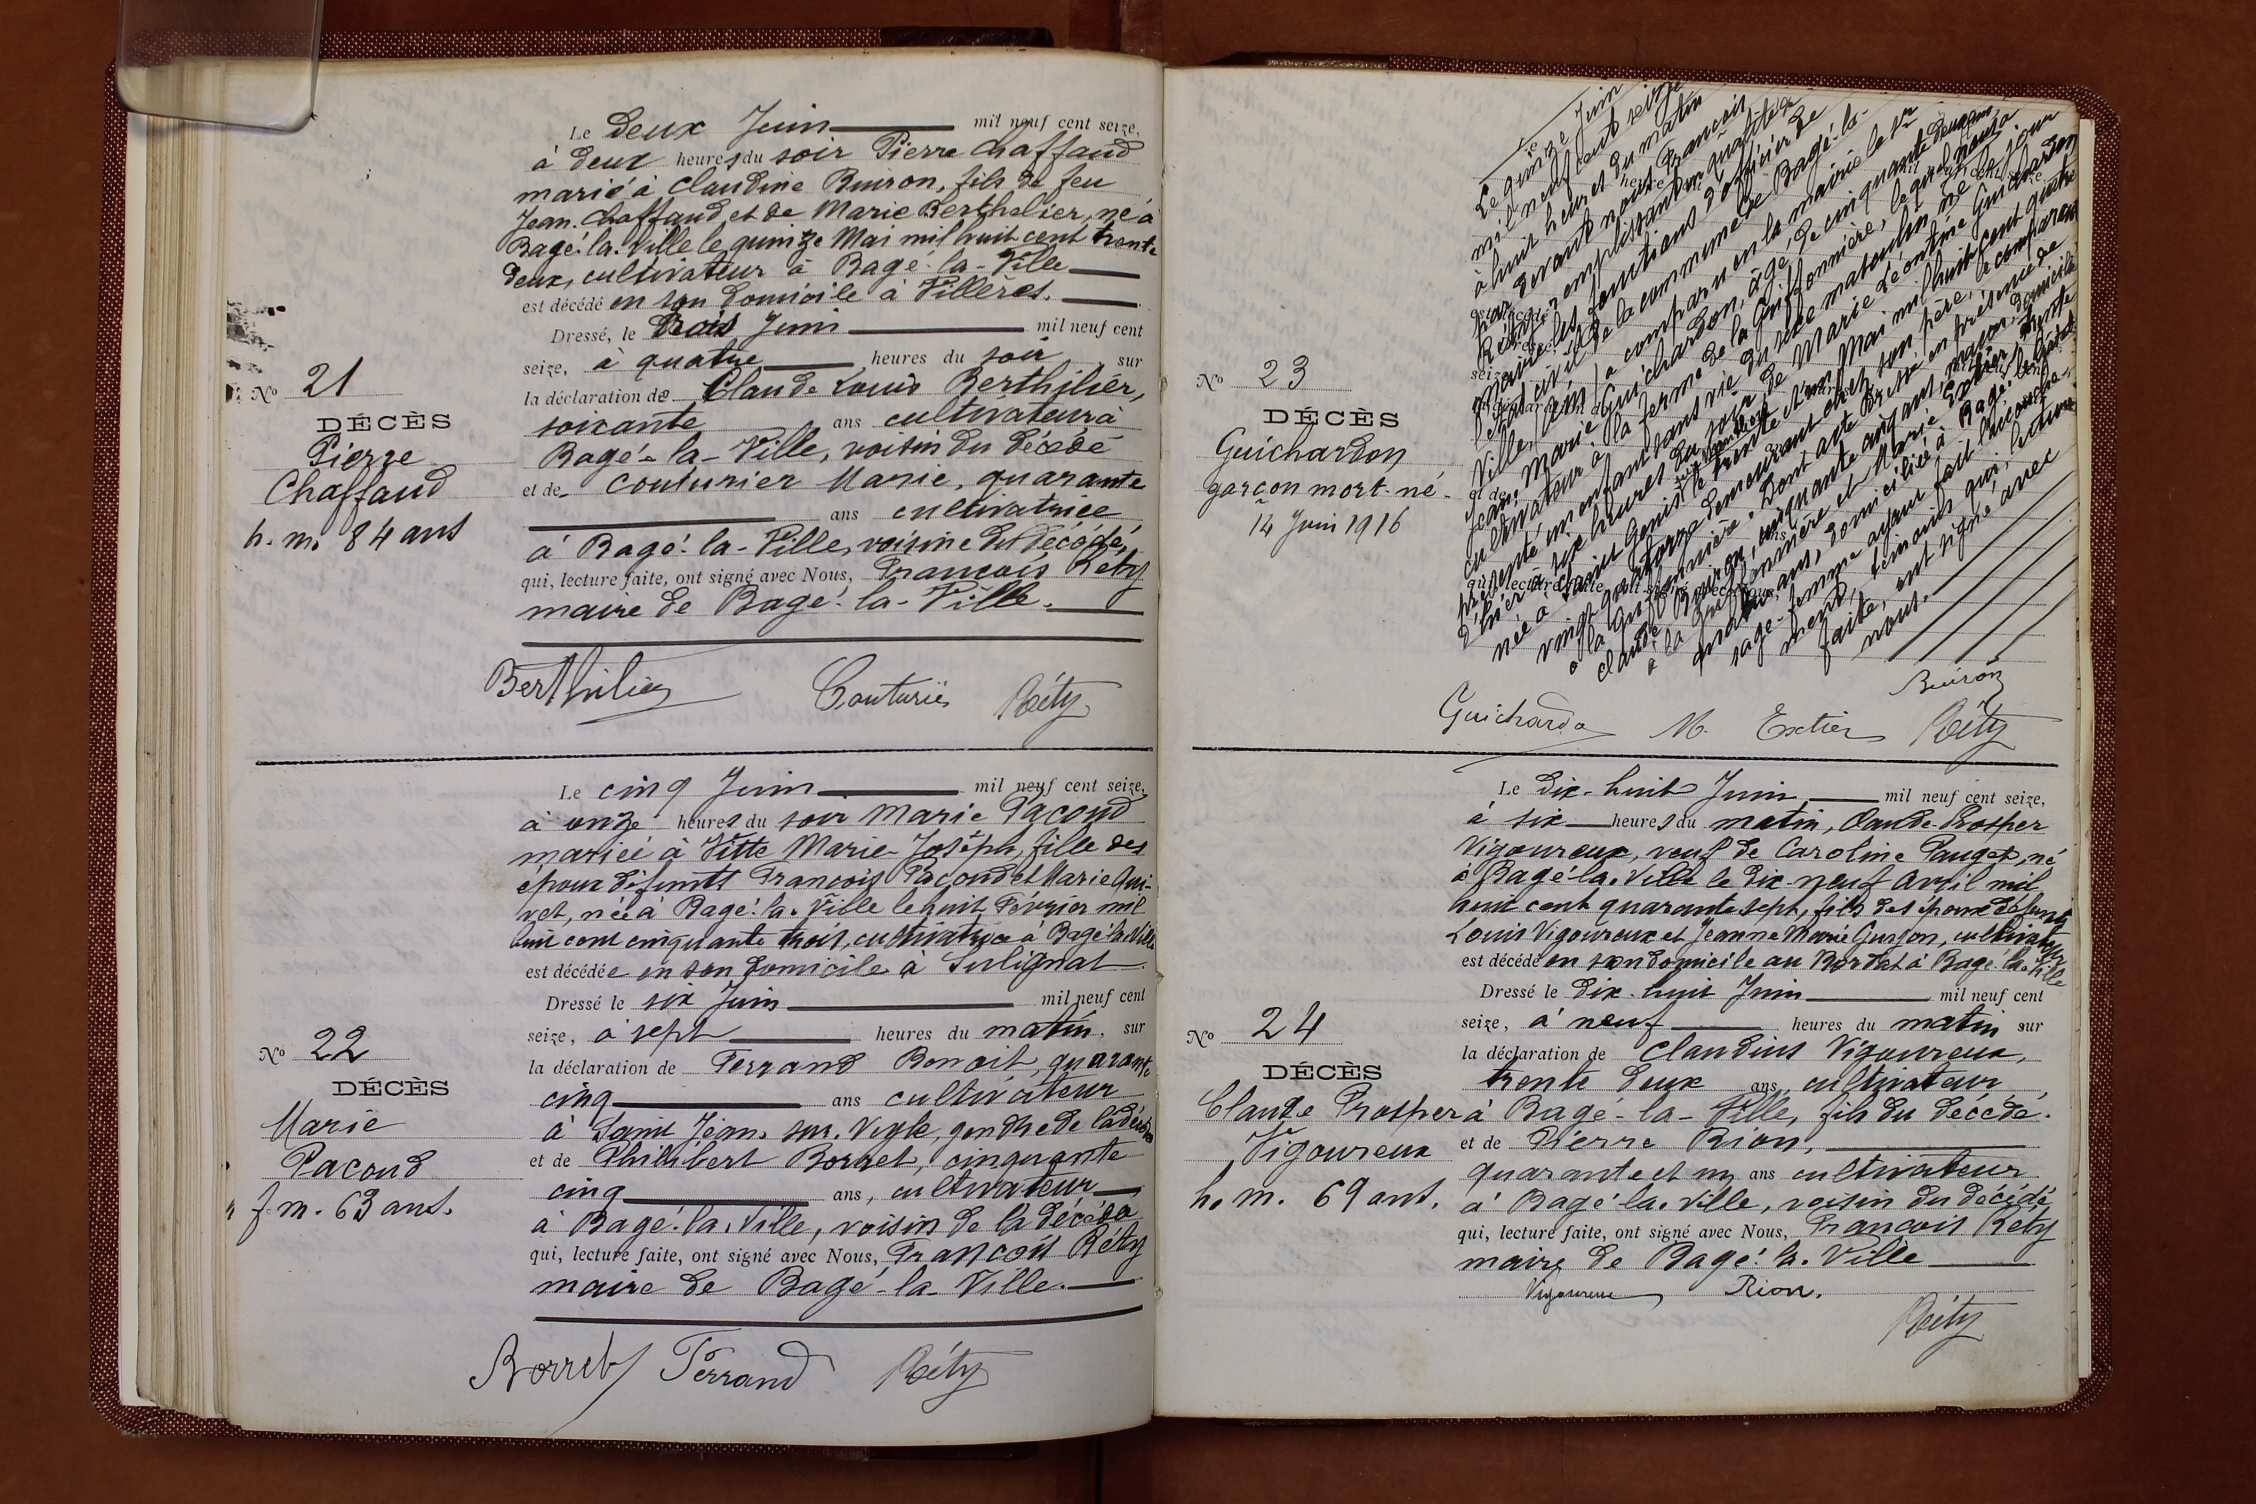 Le deux Juin mil neuf cent seize,
à deux heures du soir Pierre Chaffaud
marié à Claudine Buiron, fils de feu
Jean Chaffaud et de Marie Berthelier, né à
Bagé-la-Ville le quinze Mai mil huit cent trente
deux, cultivateur à Bagé-la-Ville
est décédé en son domicile à Villeres.
Dressé, le trois Juin mil neuf cent
seize, à quatre heures du soir sur
la déclaration de Claude Louis Berthilier,
soixante ans cultivateur à
Bagé-la-Ville, voisin du décédé
et de Couturier Marie, quarante
ans cultivatrice
à Bagé-la-Ville, voisine du décédé,
qui, lecture faite, ont signé avec Nous, François Réty
maire de Bagé-la-Ville.
No 21
DÉCÈS
Pierre
Chaffaud
h. m. 84 ans
Berthilier Couturier Réty
Le cinq Juin mil neuf cent seize,
à onze heures du soir Marie Pacoud
mariée à Vitte Marie-Joseph, fille des
époux défunts François Pacoud et Marie Qui-
vet, née à Bagé-la-Ville le huit Février mil
huit cent cinquante trois, cultivatrice à Bagé la Ville
est décédée en son domicile à Sulignat
Dressé le six Juin mil neuf cent
seize, à sept heures du matin. sur
la déclaration de Ferrand Benoit, quarante
cinq ans cultivateur
à Saint Jean-sur-Veyle, gendre de la décédée
et de Philibert Borret, cinquante
cinq ans, cultivateur
à Bagé-la-Ville, voisin de la décédée
qui, lecture faite, ont signé avec Nous, François Réty
maire de Bagé-la-Ville.
No 22
DÉCÈS
Marie
Pacoud
f. m. 63 ans.
Borret Ferrand Réty
Le quinze Juin
mil neuf cent seize
à huit heures du matin
par devant nous François
Réty, remplissant en qualité de
Maire les fonctions d'officier de
l'état civil de la commune de Bagé-la-
Ville, (Ain) a comparu en la mairie le Sr
Jean Marie Guichardon, âgé de cinquante deux ans
cultivateur à la ferme de la Griffonnière, lequel nous a
présenté un enfant sans vie du sexe masculin, né le jour
d'hier à six heures du soir, de Marie Léontine Guichardon
née à Saint Genis le trente et un Mai mil huit cent quatre
vingt quatorze demeurant chez son père, le comparant
à la Griffonnière. Dont acte dressé en présence de
Claude Buiron, cinquante cinq ans, maçon, domicilié
à la Griffonnière et Marie Extier, trente
quatre ans, domiciliée à Bagé-le-Châtel
sage-femme ayant fait l'accouche-
ment, témoins qui, lecture
faite, ont signé avec
nous.
No 23
DÉCÈS
Guichardon
garçon mort-né.
14 Juin 1916
Buiron
Guichardo M. Extier Réty
Le dix-huit Juin mil neuf cent seize,
à six heures du matin, Claude-Prosper
Vigoureux, veuf de Caroline Pauget, né
à Bagé-la-Ville le dix-neuf Avril mil
huit cent quarante sept, fils des époux défunts
Louis Vigoureux et Jeanne Marie Gurjon, cultivateur
est décédé en son domicile au Bordat à Bagé-la-Ville
Dressé le dix-huit Juin mil neuf cent
seize, à neuf heures du matin sur
la déclaration de Claudius Vigoureux,
trente deux ans, cultivateur
à Bagé-la-Ville, fils du décédé.
et de Pierre Rion,
quarante et un ans cultivateur
à Bagé-la-Ville, voisin du décédé,
qui, lecture faite, ont signé avec Nous, François Réty
maire de Bagé-la-Ville
No 24
DÉCÈS
Claude Prosper
Vigoureux
h. m. 69 ans.
Vigoureux Rion.
Réty